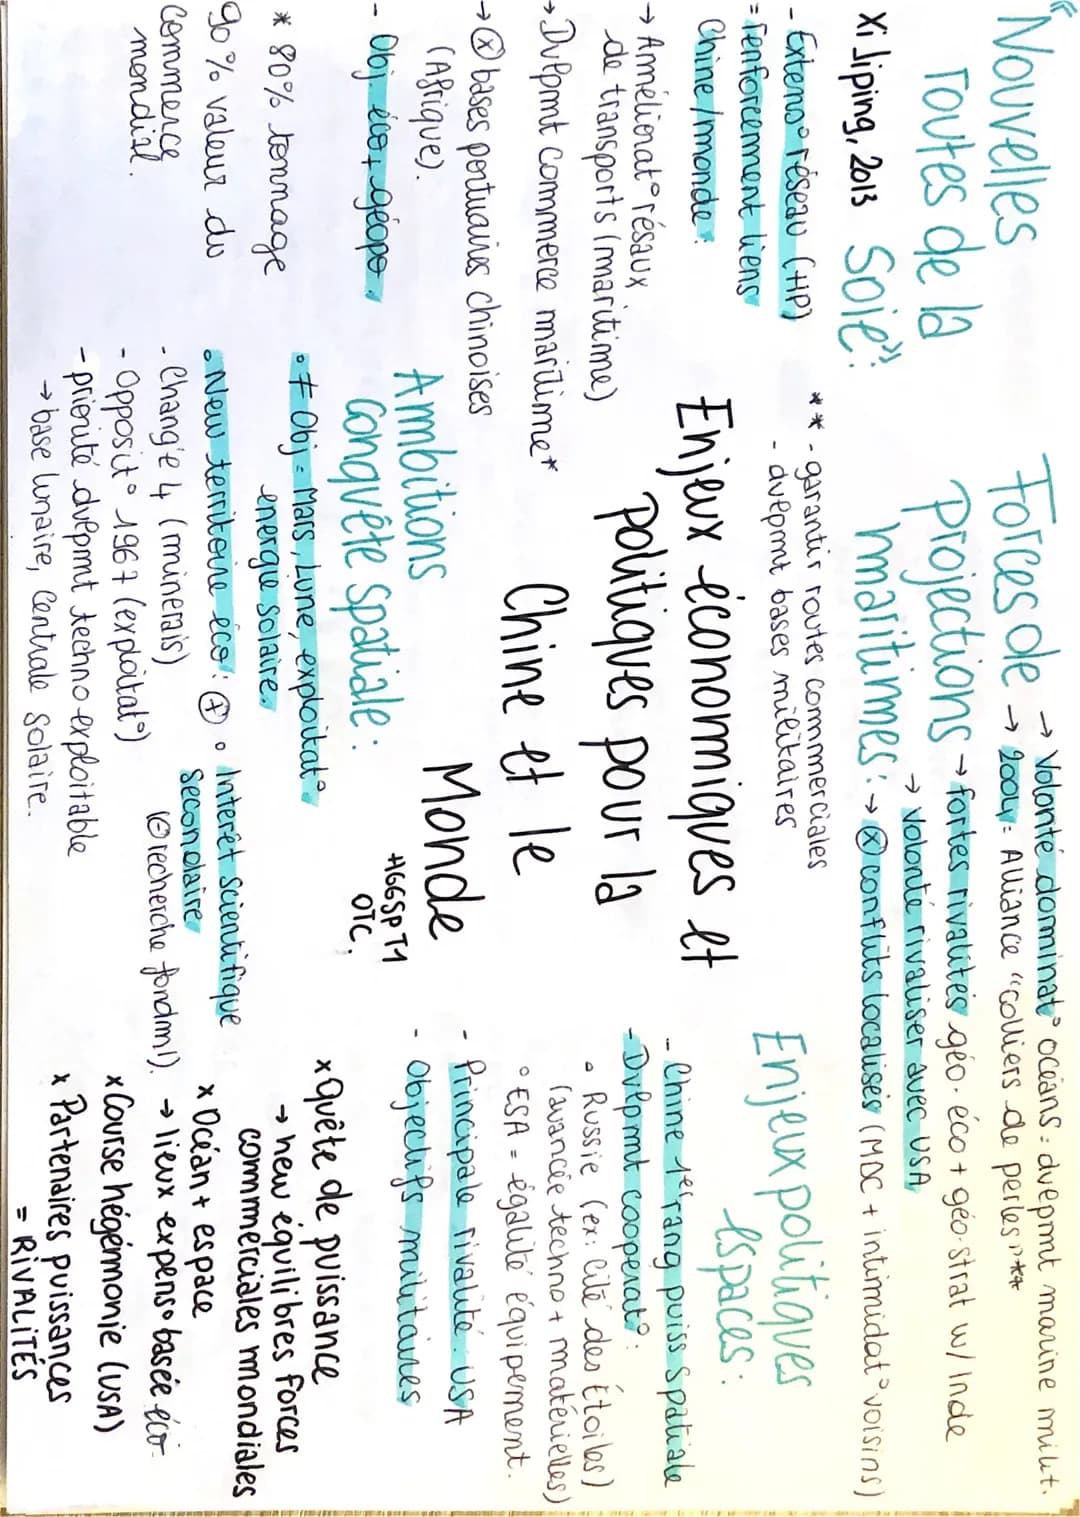 "Nouvelles
routes de la
Soie":
Xi Jiping, 2013
- Extens° réseau (HP)
= renforcement liens
Chine/monde:
→ Améliorat° résaux
de transports (maritime)
→ Dvlpmt commerce maritime*
→ ⊗ bases portuaires chinoises
(Afrique).
- Obj. éco + géopo
* 80% tonnage
90% valeur du
Commerce
mondial.
Forces de
projections
maritimes:
→ Volonté dominat° océans: dvlpmt marine milit.
→ 2004: Alliance "colliers de perles"**
→ fortes rivalités géo. éco + géo-strat w/ Inde
→ Volonté rivaliser avec USA
→ ⊗ conflits localisés (MDC + intimidat° voisins)
** - garantir routes commerciales
- dvlpmt bases militaires
Enjeux économiques et
politiques pour la
Chine et le
Monde
HGGSP T1
OTC.
Ambitions
conquête spatiale:
° ≠ Obj = Mars, Lune, exploitat°
energie solaire.
° New territoire éco: ⊕
- Chang'e 4 (minerais)
- Opposit° 1967 (exploitat°)
- priorité dvlpmt techno exploitable
→ base lunaire, Centrale Solaire.
° Interêt scientifique
secondaire
(⊖ recherche fondml).
Enjeux politiques
espaces:
- Chine 1er rang puiss spatiale
- Dvlpmt cooperat°:
° Russie (ex: Cité des Étoiles)
(avancée techno + matérielles)
° ESA = égalité équipement.
- Principale rivalité: USA
- Objectifs militaires
x Quête de puissance
→ new équilibres forces
commerciales mondiales
x Océan + espace
→ lieux expens° basée éco
x Course hégémonie (USA)
x Partenaires puissances
= RIVALITÉS